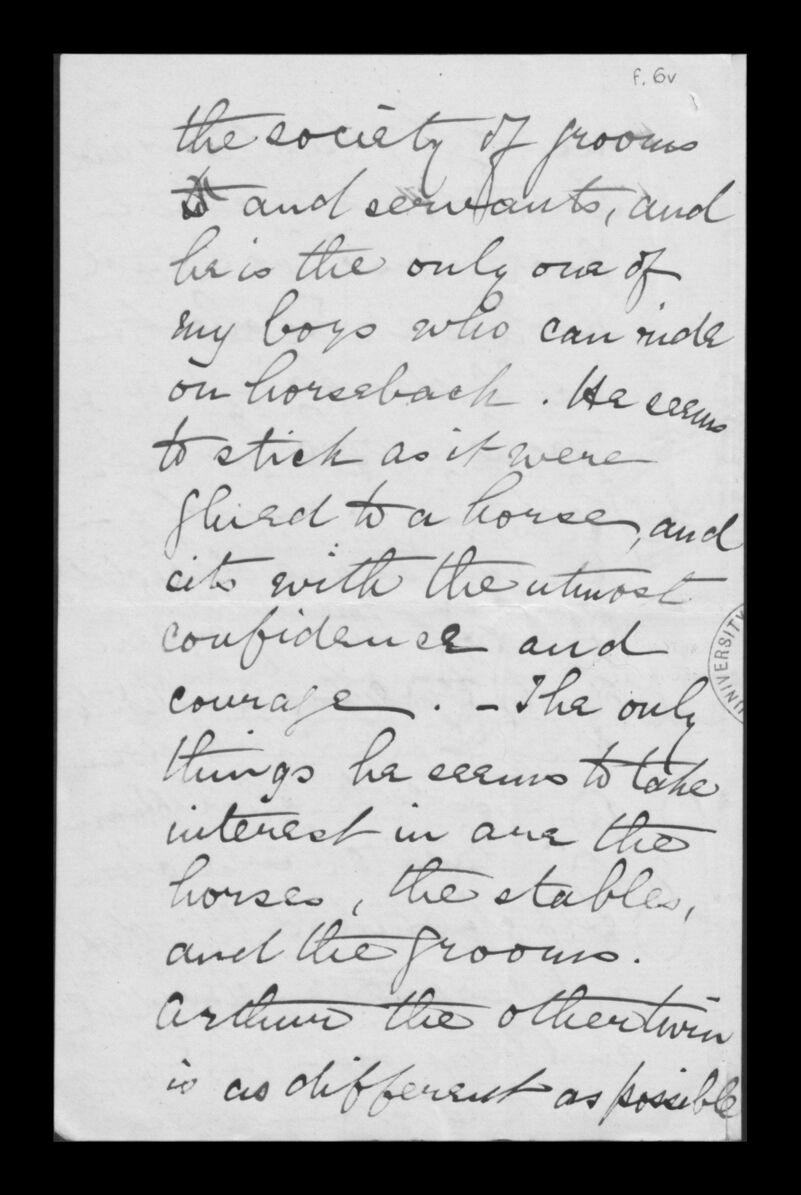 f. 6v
the society of grooms
and servants, and
he is the only one of
my boys who can ride
on horseback. He seems
to stick as it were
glued to a horse, and
sits with the utmost
confidence and
courage. - The only
things he seems to take
interest in are the
horses, the stables,
and the grooms.
Arthur the other twin
is as different as possible
UNIVERSITY